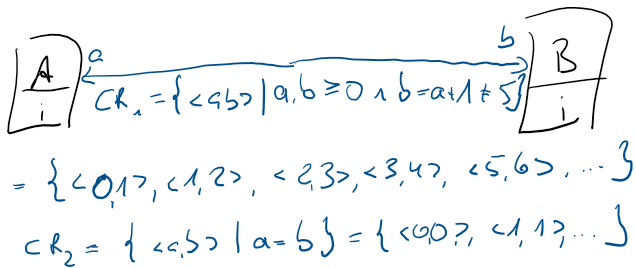 a b
A B
i i
CR₁ = {<a,b> | a,b ≥ 0 ∧ b = a+1 ≠ 5}
= {<0,1>, <1,2>, <2,3>, <3,4>, <5,6>, ...}
CR₂ = {<a,b> | a = b} = {<0,0>, <1,1>, ...}